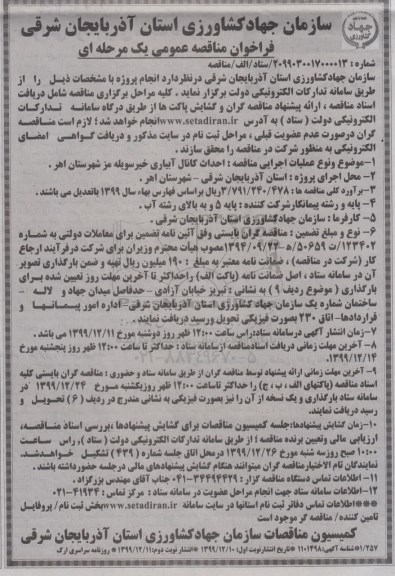 سازمان جهادکشاورزی استان آذربایجان شرقی
فراخوان مناقصه عمومی یک مرحله ای
شماره : ۲۰۹۹۰۳۰۰۱۷۰۰۰۰۱۳/ستاد/الف/مناقصه
سازمان جهادکشاورزی استان آذربایجان شرقی درنظردارد انجام پروژه با مشخصات ذیل را از
طریق سامانه تدارکات الکترونیکی دولت برگزار نماید . کلیه مراحل برگزاری مناقصه شامل دریافت
اسناد مناقصه ، ارائه پیشنهاد مناقصه گران و گشایش پاکت ها از طریق درگاه سامانه تدارکات
الکترونیکی دولت ( ستاد ) به آدرس www.setadiran.ir انجام خواهد شد؛ لازم است مناقصه
گران درصورت عدم عضویت قبلی ، مراحل ثبت نام در سایت مذکور و دریافت گواهی امضای
الکترونیکی به منظور شرکت در مناقصه را محقق سازند .
۱-موضوع ونوع عملیات اجرایی مناقصه : احداث کانال آبیاری خیرسویله مز شهرستان اهر .
۲- محل اجرای پروژه : استان آذربایجان شرقی – شهرستان اهر .
۳-برآورد کلی مناقصه ها : ۳/۷۹۱/۲۴۰/۴۷۸ریال براساس فهارس بهاء سال ۱۳۹۹ باتعدیل می باشند .
۴- پایه و رشته پیمانکارشرکت کننده : پایه ۵ و به بالای رشته آب .
۵- کارفرما : سازمان جهادکشاورزی استان آذربایجان شرقی .
۶- نوع و مبلغ تضمین : مناقصه گران بایستی وفق آئین نامه تضمین برای معاملات دولتی به شماره
۱۲۳۴۰۲/ت ۵۰۶۵۹ه-۱۳۹۴/۰۹/۲۲ مصوب هیأت محترم وزیران برای شرکت درفرآیند ارجاع
کار (شرکت در مناقصه) ، ضمانت نامه معتبر به مبلغ : ۱۹۰ میلیون ریال تهیه و ضمن بارگذاری تصویر
آن در سامانه ستاد ، اصل ضمانت نامه (پاکت الف) راحداکثر تا آخرین مهلت روز تعیین شده برای
بارگذاری ( موضوع ردیف ۹ ) به نشانی : تبریز خیابان آزادی – حدفاصل میدان جهاد و لاله –
ساختمان شماره یک سازمان جهاد کشاورزی استان آذربایجان شرقی– اداره امور پیمانها و
قراردادها– اتاق ۲۳۰ بصورت فیزیکی تحویل ورسید دریافت نمایند .
۷- زمان انتشار آگهی درسامانه ستاد:راس ساعت ۱۲:۰۰ ظهر روز دوشنبه مورخ ۱۳۹۹/۱۲/۱۱ می باشد .
۸- آخرین مهلت زمانی دریافت اسنادمناقصه ازسامانه ستاد : حداکثر تا ساعت ۱۲:۰۰ ظهر روز پنجشنبه مورخ
۱۳۹۹/۱۲/۱۴.
۹- آخرین مهلت زمانی ارائه پیشنهاد توسط مناقصه گران از طریق سامانه ستاد و حضوری : مناقصه گران بایستی کلیه
اسناد مناقصه (پاکتهای الف ، ب ، ج) را حداکثر تاساعت ۱۲:۰۰ ظهر روزیکشنبه مورخ ۱۳۹۹/۱۲/۲۴ در
سامانه ستاد بارگذاری و یک نسخه از آن را نیز بصورت فیزیکی به نشانی مندرج در ردیف (۶) تحویل و
رسید دریافت نمایند.
۱۰-زمان گشایش پیشنهادها:جلسه کمیسیون مناقصات برای گشایش پیشنهادها ،بررسی اسناد مناقصه،
ارزیابی مالی وتعیین برنده مناقصه ؛ از طریق سامانه تدارکات الکترونیکی دولت ( ستاد )، راس ساعت
۱۰:۰۰ صبح روزسه شنبه مورخ ۱۳۹۹/۱۲/۲۶ درمحل اتاق جلسه شماره (۴۳۹) تشکیل خواهدشد.
نمایندگان تام الاختیارمناقصه گران میتوانند هنگام گشایش پیشنهادهای مالی درجلسه حضورداشته باشند .
۱۱- اطلاعات تماس دستگاه مناقصه گزار : ۳۴۴۹۴۴۲۹-۰۴۱ جناب آقای مهندس بزرگزاد .
۱۲- اطلاعات سامانه ستاد جهت انجام مراحل عضویت در سامانه ستاد : مرکز تماس : ۴۱۹۳۴-۰۲۱
***اطلاعات تماس دفاتر ثبت نام استانها در سایت سامانه www.setadiran.ir بخش ثبت نام / پروفایل
تامین کننده / مناقصه گر موجود است
کمیسیون مناقصات سازمان جهادکشاورزی استان آذربایجان شرقی
۱/۲۵۷*شناسه آگهی:۱۱۰۱۴۹۸ *تاریخ انتشارنوبت اول: ۱۳۹۹/۱۲/۱۰ *انتشارنوبت دوم:۱۳۹۹/۱۲/۱۱ * روزنامه سراسری ارک